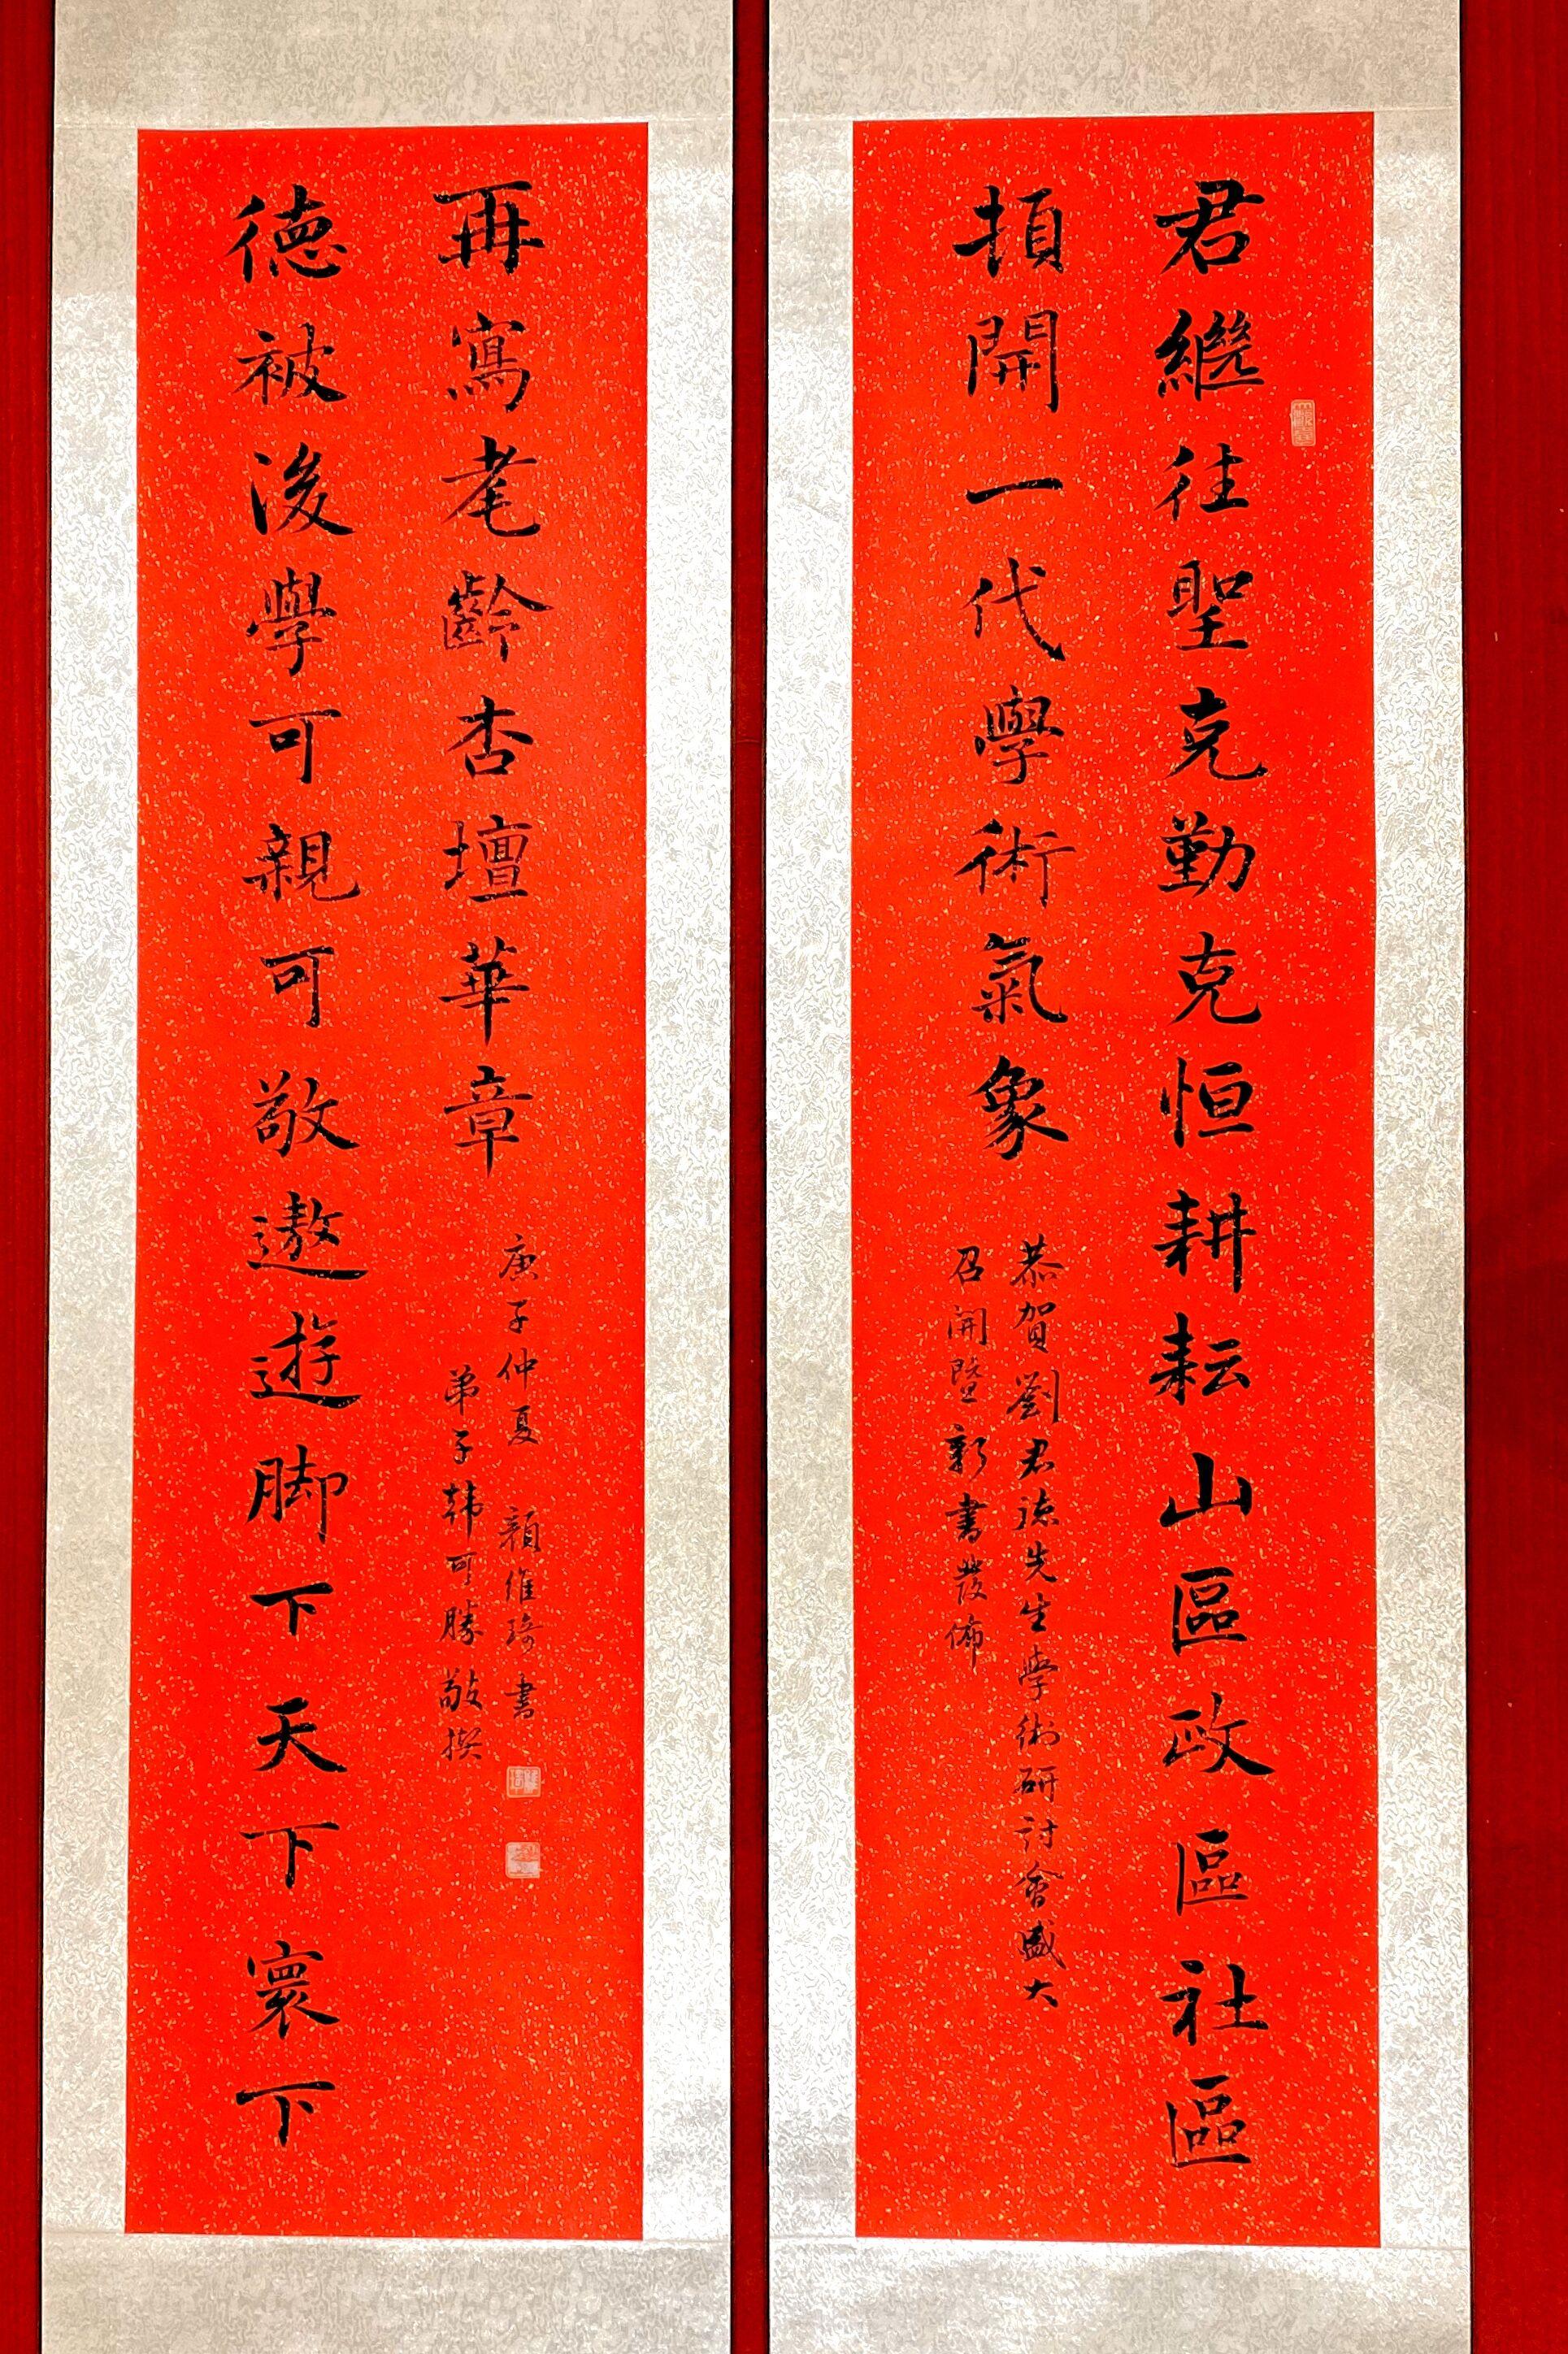 君繼往聖克勤克恒耕耘山區政區社區
頓開一代學術氣象
恭賀劉君德先生學術研討會盛大
召開暨新書發佈
德被後學可親可敬遨遊脚下天下寰下
再寫耄齡杏壇華章
庚子仲夏 顏維琦書
弟子韩可勝敬撰